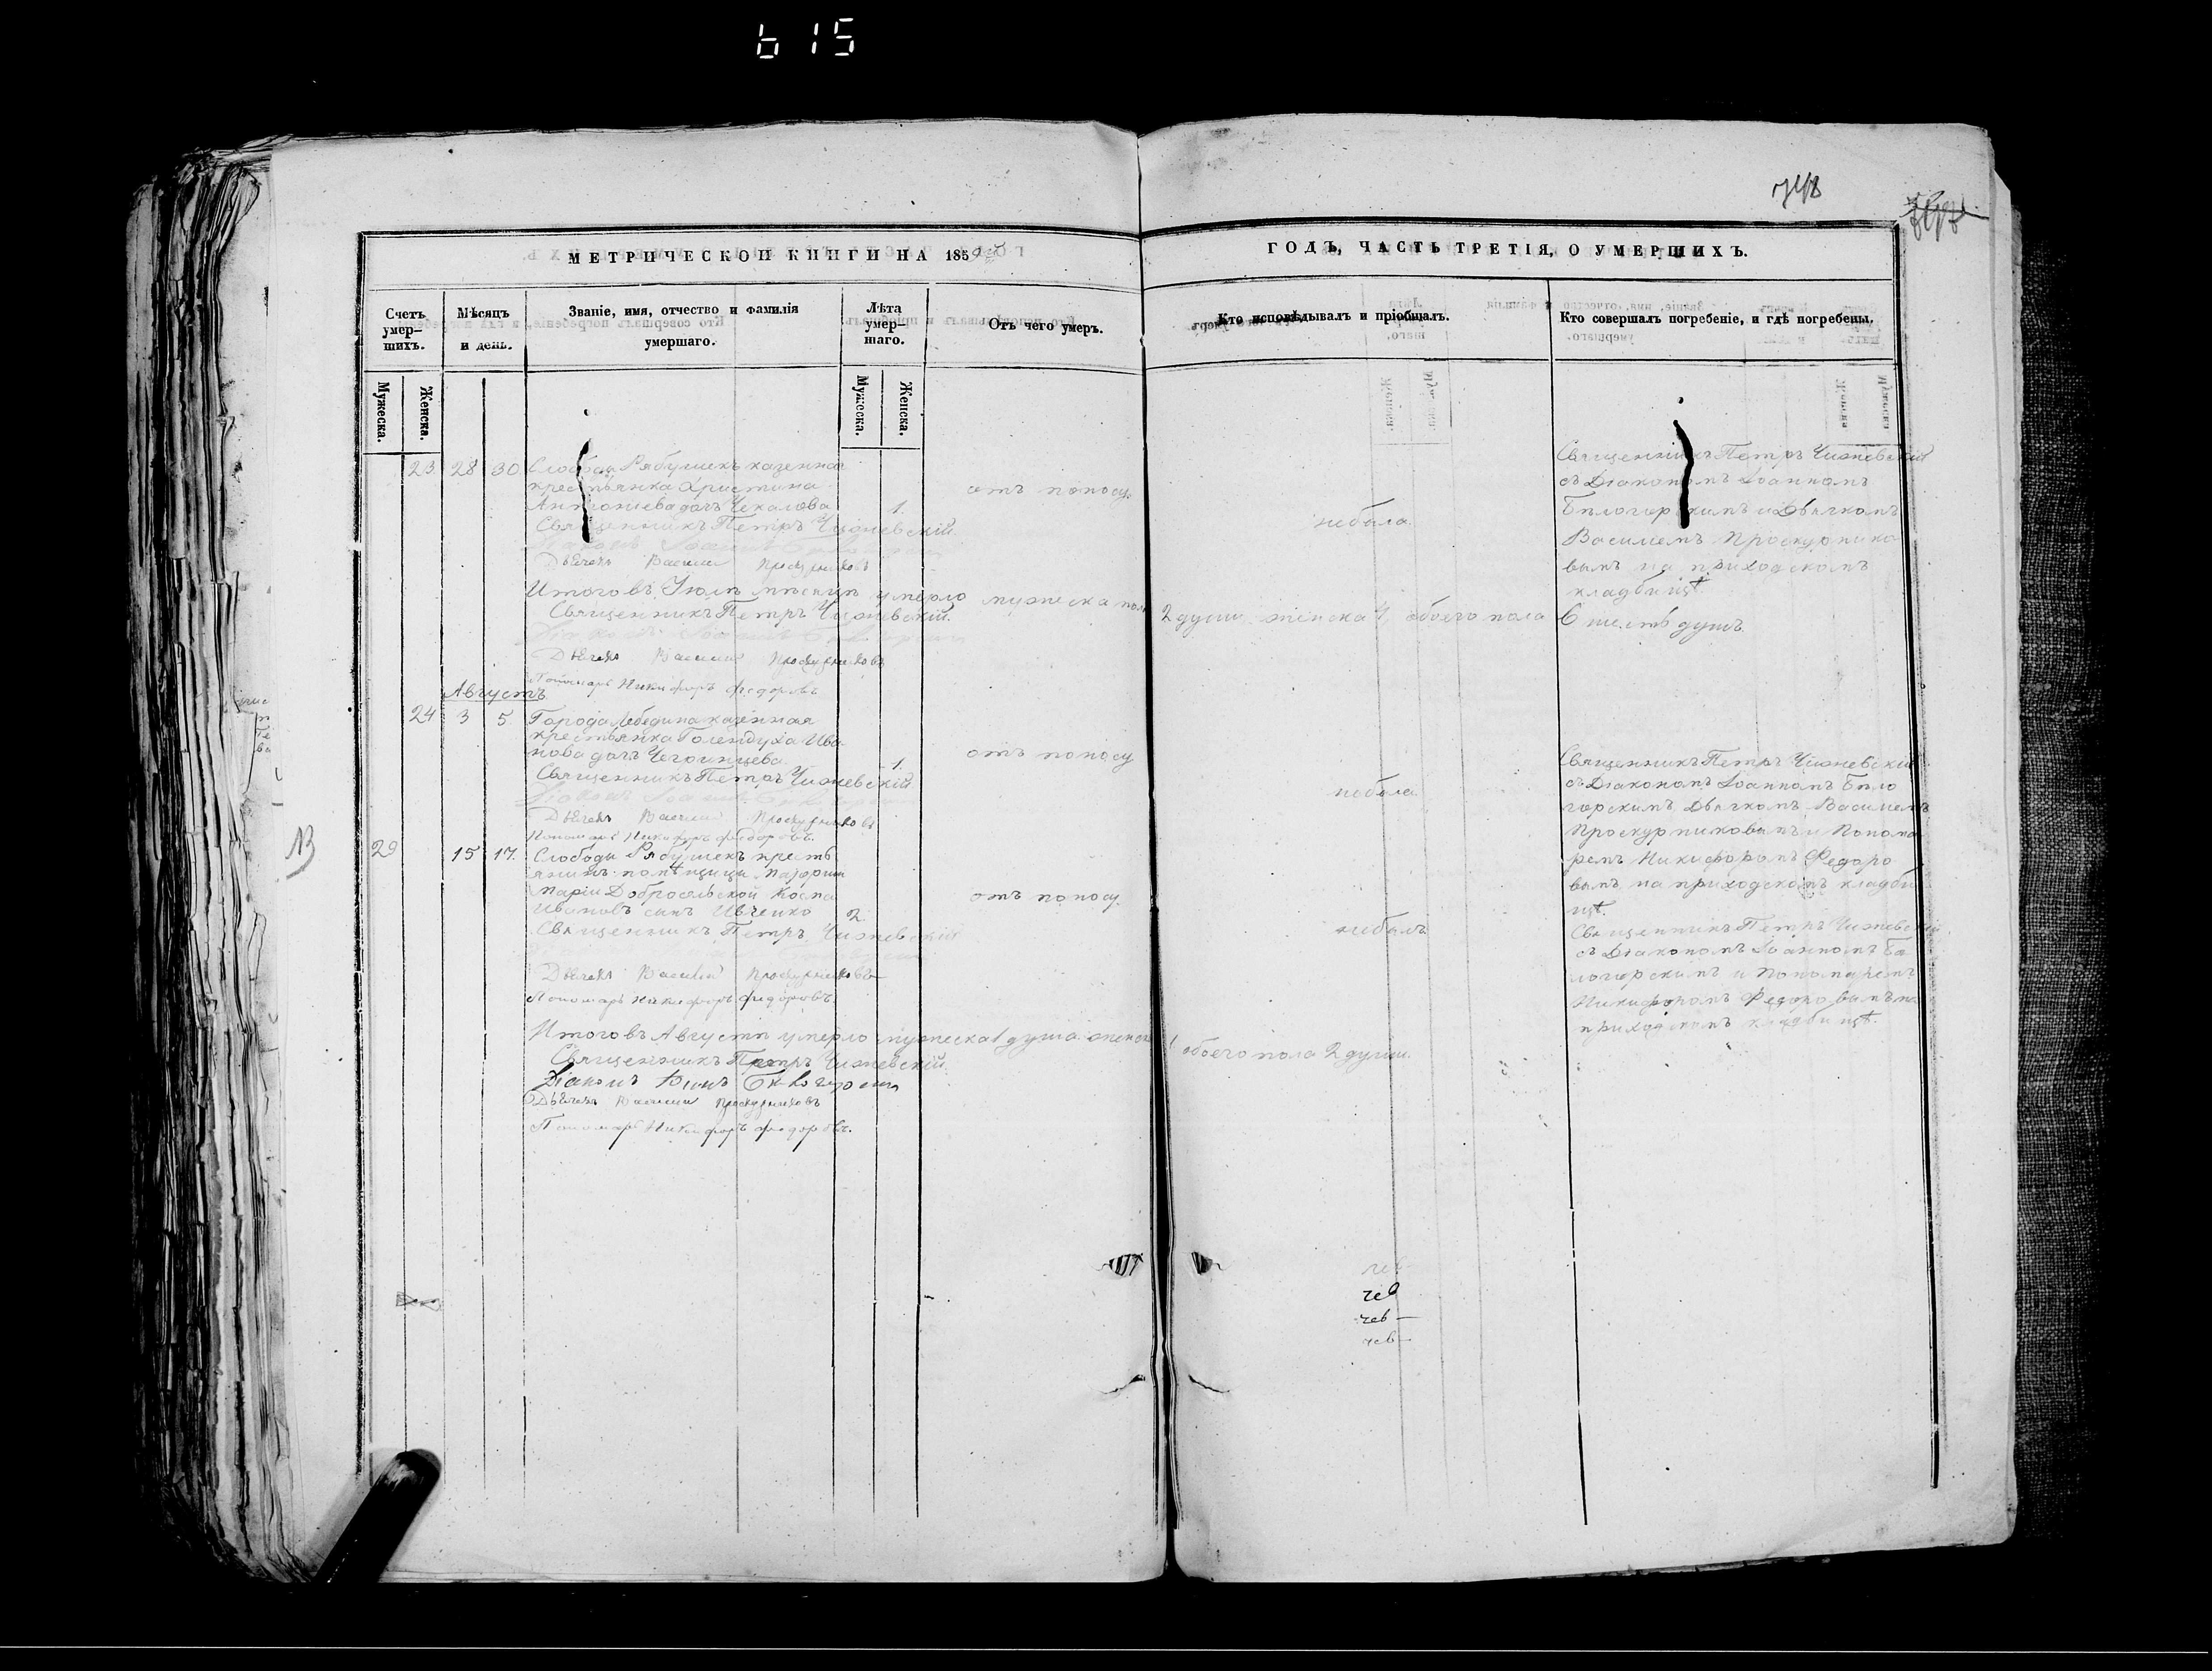 615
МЕТРИЧЕСКОЙ КНИГИ НА 1859
ГОДЪ, ЧАСТЬ ТРЕТІЯ, О УМЕРШИХЪ.
Счетъ умер-шихъ.
Мужеска.
Женска.
Мѣсяцъ и день.
Званіе, имя, отчество и фамилія умершаго.
Лѣта умер-шаго.
Мужеска.
Женска.
Отъ чего умеръ.
Кто исповѣдывалъ и пріобщалъ.
Кто совершалъ погребеніе, и гдѣ погребены.
23 28 30 Слободы Рябушекъ казенная
крестьянка Христина
Антоніева дочъ Чекалова 1.
отъ поносу.
небыла.
Священникъ Петръ Чижевскій
Дьячекъ Василій Проскурниковъ
Священникъ Петръ Чижевскій
съ Діакономъ Іоанномъ
Бѣлогорскимъ и Дьячкомъ
Василіемъ Проскурнико
вымъ на приходскомъ
кладбищѣ.
Итого въ Іюлѣ мѣсяцѣ умерло мужеска пола 2 души женска 4, обоего пола 6 шесть душъ.
Священникъ Петръ Чижевскій.
Діаконъ Іоаннъ
Дьячекъ Василій Проскурниковъ
Пономарь Никифоръ Федоровъ
Августъ
24 3 5 Города Лебедина казенная
крестьянка Голендуха Ива
нова дочъ 1.
отъ поносу
небыла
Священникъ Петръ Чижевскій
Діаконъ Іоаннъ
Дьячекъ Василій Проскурниковъ
Пономарь Никифоръ Федоровъ.
Священникъ Петръ Чижевскій
съ Діакономъ Іоанномъ Бѣло
горскимъ Дьячкомъ Василіемъ
Проскурниковымъ и Понома
ремъ Никифоромъ Федоро
вымъ на приходскомъ кладби
щѣ.
29 15 17. Слободы Рябушекъ кресть
янинъ помѣщицы Маіорши
Маріи Добросельской Косма
Ивановъ сынъ Ивченко 2.
отъ поносу.
небылъ
Священникъ Петръ Чижевскій
Дьячекъ Василій Проскурниковъ
Пономарь Никифоръ Федоровъ
Священникъ Петръ Чижевскій
съ Діакономъ Іоанномъ Бѣ
логорскимъ и Пономаремъ
Никифоромъ Федоровымъ на
приходскомъ кладбищѣ.
Итого въ Августѣ умерло мужеска 1 душа женска 1 обоего пола 2 души.
Священникъ Петръ Чижевскій
Діаконъ Іоаннъ Бѣлогорскій
Дьячекъ Василій Проскурниковъ
Пономарь Никифоръ Федоровъ.